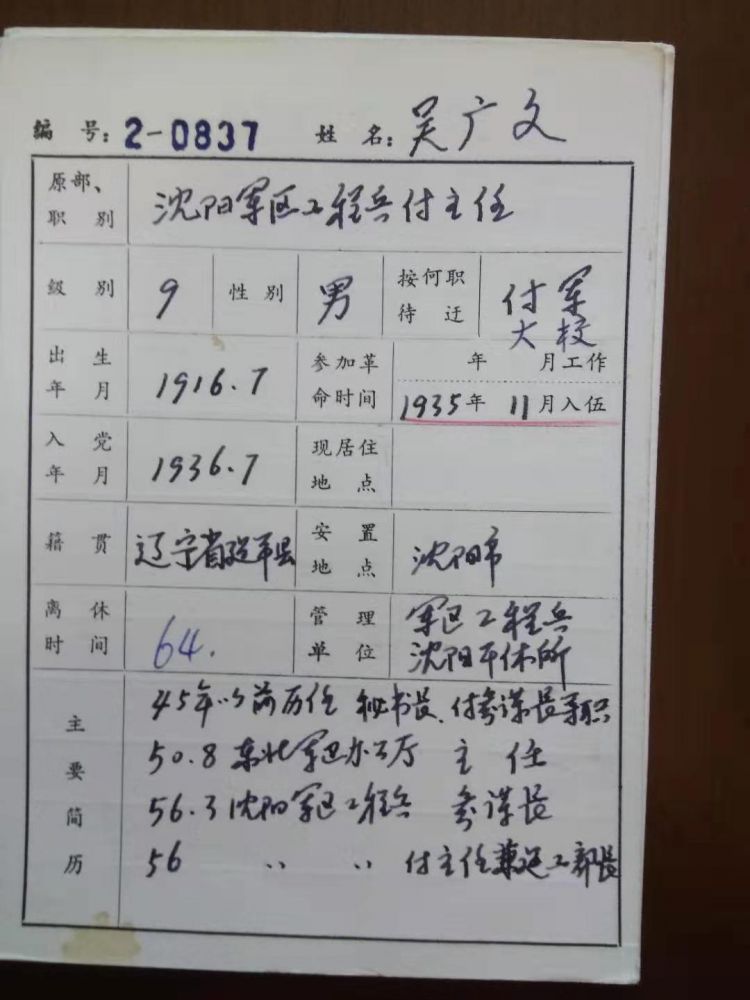 编 号: 2-0837 姓 名: 吴广文
原部、
职 别
沈阳军区工程兵付主任
级 别 9 性 别 男
按何职
待 迁
付军
大校
出 生
年 月
1916.7
参加革
命时间
年 月工作
1935年 11月入伍
入 党
年 月
1936.7
现居住
地 点
籍 贯
辽宁省建平县
安 置
地 点
沈阳市
离 休
时 间
64.
管 理
单 位
军区工程兵
沈阳干休所
主
要
简
历
45年以前历任 秘书长、付参谋长等职
50.8 东北军区办公厅 主 任
56.3 沈阳军区工程兵 参谋长
56 〃 〃 付主任兼 工部长